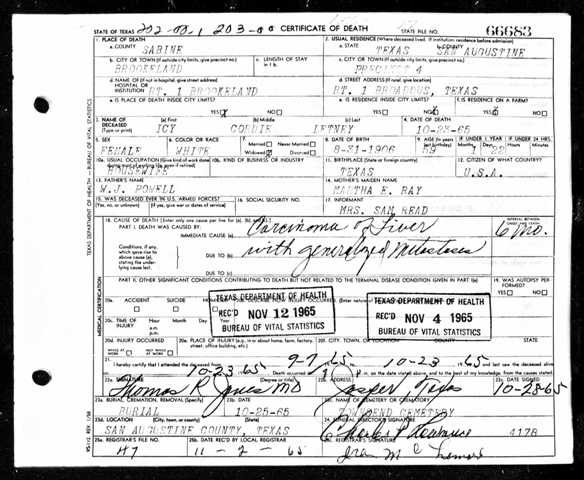 STATE OF TEXAS CERTIFICATE OF DEATH STATE FILE NO. 66683
1. PLACE OF DEATH
a. COUNTY
SABINE
2. USUAL RESIDENCE (Where deceased lived. If institution: residence before admission)
a. STATE b. COUNTY
TEXAS SAN AUGUSTINE
b. CITY OR TOWN (If outside city limits, give precinct no.) c. LENGTH OF STAY in 1 b.
BROOKELAND
c. CITY OR TOWN (If outside city limits, give precinct no.)
PRECINCT 4
d. NAME OF (If not in hospital, give street address) HOSPITAL OR INSTITUTION
RT. 1 BROOKELAND
d. STREET ADDRESS (If rural, give location)
RT. 1 BROADDUS, TEXAS
e. IS PLACE OF DEATH INSIDE CITY LIMITS?
YES NO
e. IS RESIDENCE INSIDE CITY LIMITS?
YES NO
f. IS RESIDENCE ON A FARM?
YES NO
3. NAME OF DECEASED (Type or print) (a) First (b) Middle (c) Last
ICY CORDIE
4. DATE OF DEATH
10-23-65
5. SEX
FEMALE
6. COLOR OR RACE
WHITE
7. Married Never Married
Widowed Divorced
8. DATE OF BIRTH
8-31-1906
9. AGE (In years last birthday)
59
IF UNDER 1 YEAR IF UNDER 24 HRS.
Months Days Hours Minutes
22
10a. USUAL OCCUPATION (Give kind of work done
HOUSEWIFE
10b. KIND OF BUSINESS OR INDUSTRY
11. BIRTHPLACE (State or foreign country)
TEXAS
12. CITIZEN OF WHAT COUNTRY?
U.S.A.
13. FATHER'S NAME
W.J. POWELL
14. MOTHER'S MAIDEN NAME
MARTHA E. RAY
15. WAS DECEASED EVER IN U.S. ARMED FORCES?
(Yes, no, or unknown) (If yes, give war or dates of service)
16. SOCIAL SECURITY NO.
17. INFORMANT
MRS. SAM READ
18. CAUSE OF DEATH [Enter only one cause per line for (a), (b), and (c).]
INTERVAL BETWEEN ONSET AND DEATH
PART I. DEATH WAS CAUSED BY:
IMMEDIATE CAUSE (a) Carcinoma of Liver 6 Mo.
Conditions, if any, which gave rise to above cause (a), stating the underlying cause last.
DUE TO (b) with generalized Metastases
DUE TO (c)
PART II. OTHER SIGNIFICANT CONDITIONS CONTRIBUTING TO DEATH BUT NOT RELATED TO THE TERMINAL DISEASE CONDITION GIVEN IN PART I(a)
19. WAS AUTOPSY PERFORMED?
YES NO
20a. ACCIDENT SUICIDE
TEXAS DEPARTMENT OF HEALTH
REC'D NOV 12 1965
BUREAU OF VITAL STATISTICS
TEXAS DEPARTMENT OF HEALTH
REC'D NOV 4 1965
BUREAU OF VITAL STATISTICS
20c. TIME OF INJURY Hour Month Day Year
a.m.
p.m.
20d. INJURY OCCURRED
20e. PLACE OF INJURY (e.g., in or about home, farm, factory, street, office building, etc.)
20f. CITY, TOWN, OR LOCATION COUNTY STATE
21. I hereby certify that I attended the deceased 9-7 65 10-23 65
10-23-65 Death occurred
22a. SIGNATURE (Degree or title)
Thomas R. Jones MD
22b. ADDRESS
Jasper Texas
22c. DATE SIGNED
10-28-65
23a. BURIAL, CREMATION, REMOVAL (Specify)
BURIAL
23b. DATE
10-25-65
23c. NAME OF CEMETERY OR CREMATORY
TOWNSEND CEMETERY
23d. LOCATION (City, town, or county) (State)
SAN AUGUSTINE COUNTY, TEXAS
24. FUNERAL DIRECTOR'S SIGNATURE
4178
25a. REGISTRAR'S FILE NO.
47
25b. DATE REC'D BY LOCAL REGISTRAR
11 - 2 - 65
25c. REGISTRAR'S SIGNATURE
TEXAS DEPARTMENT OF HEALTH — BUREAU OF VITAL STATISTICS
MEDICAL CERTIFICATION